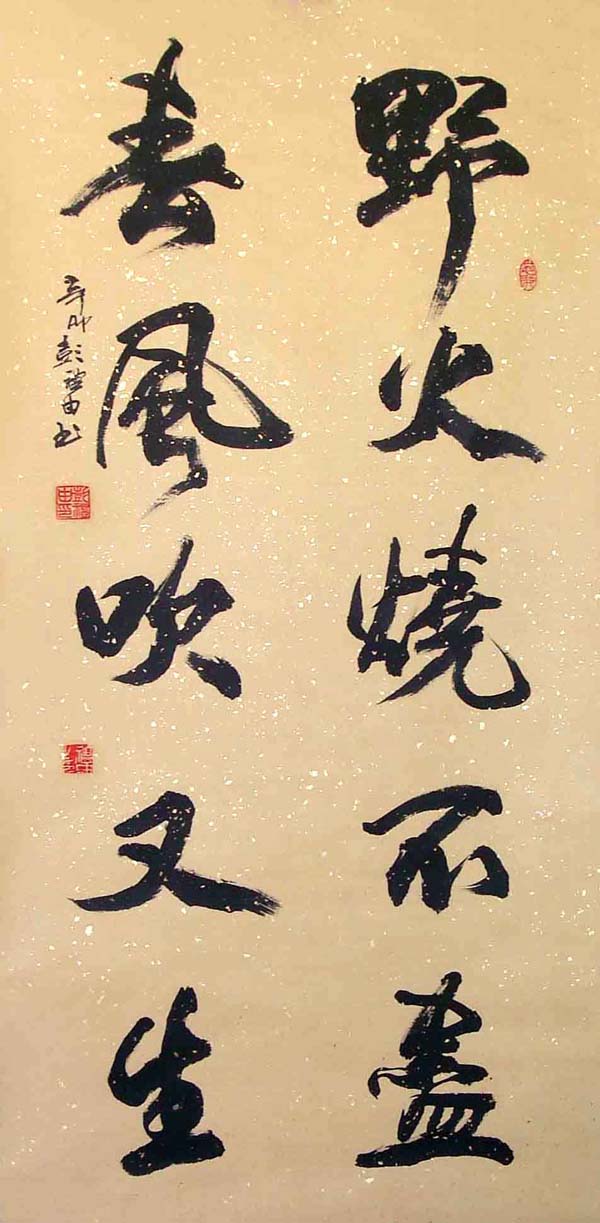 野火燒不盡
春風吹又生
辛卯彭由书